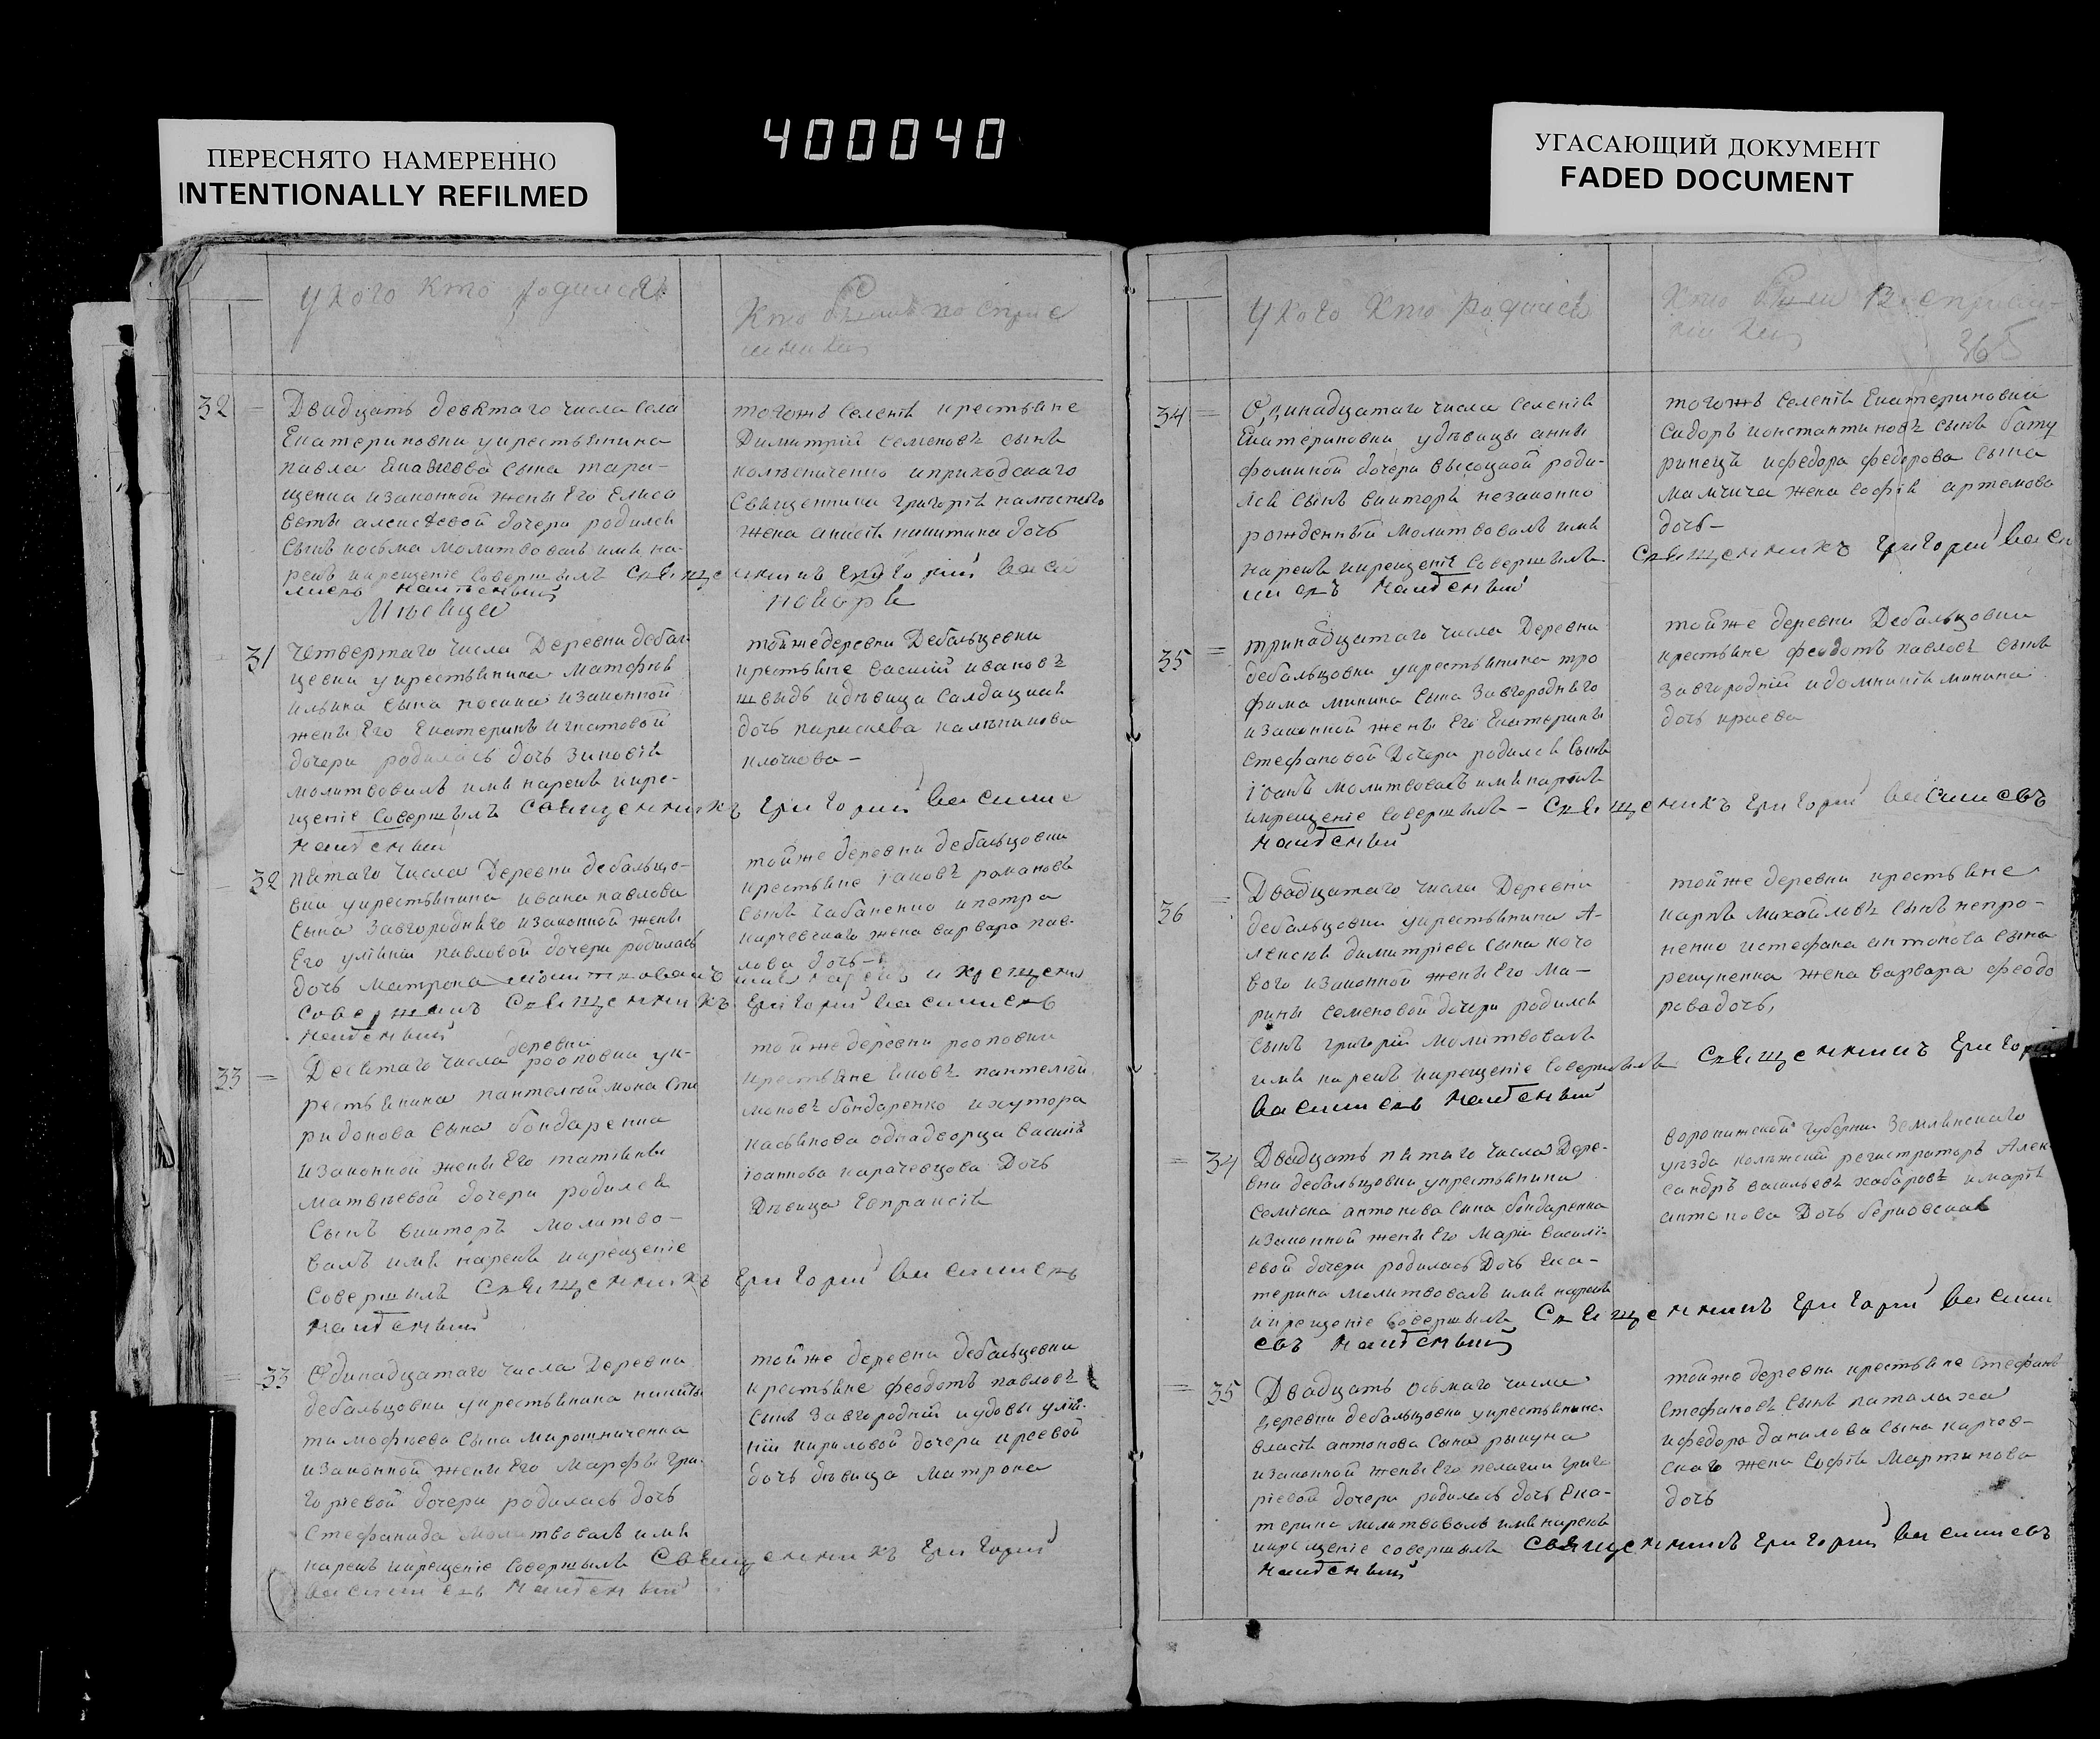 400040
ПЕРЕСНЯТО НАМЕРЕННО
INTENTIONALLY REFILMED
УГАСАЮЩИЙ ДОКУМЕНТ
FADED DOCUMENT
у кого кто родился
Кто были восприе
мники
32 Двадцать девятаго числа села
Екатериновки у крестьянина
павла сына тара-
щенка и законной жены Его Елиса
веты алексѣевой дочери родился
сынъ косьма молитвовалъ имя на-
рекъ и крещеніе совершылъ Священникъ Григорій Васи
лиевъ
тогожъ селенія крестьяне
Димитрій семеновъ сынъ
колесниченко и приходскаго
Священника григорія
жена анисія никитина дочь
Мѣсяца ноября
31 Четвертаго числа Деревни дебал
цевки у крестьянина Матфея
ильина сына носика и законной
жены Его Екатерины игнатовой
дочери родилась дочь Зиновія
молитвовалъ имя нарекъ и кре-
щеніе совершылъ Священникъ Григорій Василие
той же деревни Дебальцевки
крестьяне василій ивановъ
швидъ и дѣвица салдацкая
дочь параскева калѣникова
клочкова -
32 пятаго числа Деревни дебальцо-
вки у крестьянина ивана павлова
сына Завгороднѣго и законной жены
Его уліяніи павловой дочери родилась
дочь матрона молитвовалъ имя нарекъ и крещение
совершилъ Священникъ Григорій Василиевъ
той же деревни дебальцовки
крестьяне іаковъ романовъ
сынъ чабаненко и петра
карчевскаго жена варвара пав-
лова дочь -
33 Десятаго числа деревни рооповки у к-
рестьянина пантелѣймона спи
ридонова сына бондаренка
и законной жены Его татьяны
матвѣевой дочери родился
сынъ викторъ молитво-
валъ имя нарекъ и крещеніе
совершылъ Священникъ Григорій Василиевъ
той же деревни рооповки
крестьяне яковъ пантелѣй
моновъ бондаренко и хутора
касьянова однадворца василія
іоаннова карачевцова Дочь
Дѣвица Евпраксія
33 Одинадцатаго числа Деревни
дебальцовки у крестьянина никиты
тимофѣева сына мирошниченка
и законной жены Его Марфы гри-
горіевой дочери родилась дочь
Стефанида молитвовалъ имя
нарекъ и крещеніе совершылъ Священникъ Григорій
Василиевъ
той же деревни дебальцевки
крестьяне феодотъ павловъ
сынъ Завгородній и удовы улія-
ніи кириловой дочери краевой
дочь дѣвица матрона
у кого кто родился
кто были восприем-
ники
365
34 Одинадцатаго числа селенія
Екатериновки у дѣвицы анны
фоминой дочери высоцкой роди-
лся сынъ викторъ незаконно
рожденный молитвовалъ имя
нарекъ и крещеніе совершылъ Священникъ Григорій Васи
лиевъ
тогожъ селенія Екатериновки
сидоръ константиновъ сынъ бату
ринецъ и федора федорова сына
мамчича жена софія артемова
дочь -
35 тринадцатаго числа Деревни
дебальцовки у крестьянина тро
фима минина сына Завгороднѣго
и законной жены Его Екатерины
Стефановой Дочери родился сынъ
іоанъ молитвовалъ имя нарекъ
и крещеніе совершылъ - Священникъ Григорій Василиевъ
той же деревни Дебальцовки
крестьяне феодотъ павловъ сынъ
Завгородній и домникія минина
дочь краева
36 Двадцатаго числа Деревни
дебальцовки у крестьянина А-
лексѣя димитріева сына
и законной жены Его Ма-
рины семеновой дочери родился
сынъ григорій молитвовалъ
имя нарекъ и крещеніе совершылъ Священникъ Григорі
Василиевъ
той же деревни крестьяне
карпъ михайловъ сынъ
и стефана антонова сына
жена варвара феодо
рова дочь,
34 Двадцать пятаго числа Дере-
вни дебальцовки у крестьянина
антонова сына бондаренка
и законной жены Его Маріи василі-
евой дочери родилась Дочь Ека-
терина молитвовалъ имя нарекъ
и крещеніе совершылъ Священникъ Григорій Васили
евъ
воронижской губерніи Землянскаго
уѣзда колѣжскій регистраторъ Алек
сандръ васильевъ хабаровъ и марія
антонова Дочь
35 Двадцать осьмаго числа
деревни дебальцовки у крестьянина
власія антонова сына
и законной жены Его пелагеи григо
ріевой дочери родилась дочь Ека-
терина молитвовалъ имя нарекъ
и крещеніе совершылъ Священникъ Григорій Василиевъ
той же деревни крестьяне Стефанъ
Стефановъ сынъ паталаха
и федора данилова сына карчев-
скаго жена софія Мартинова
дочь